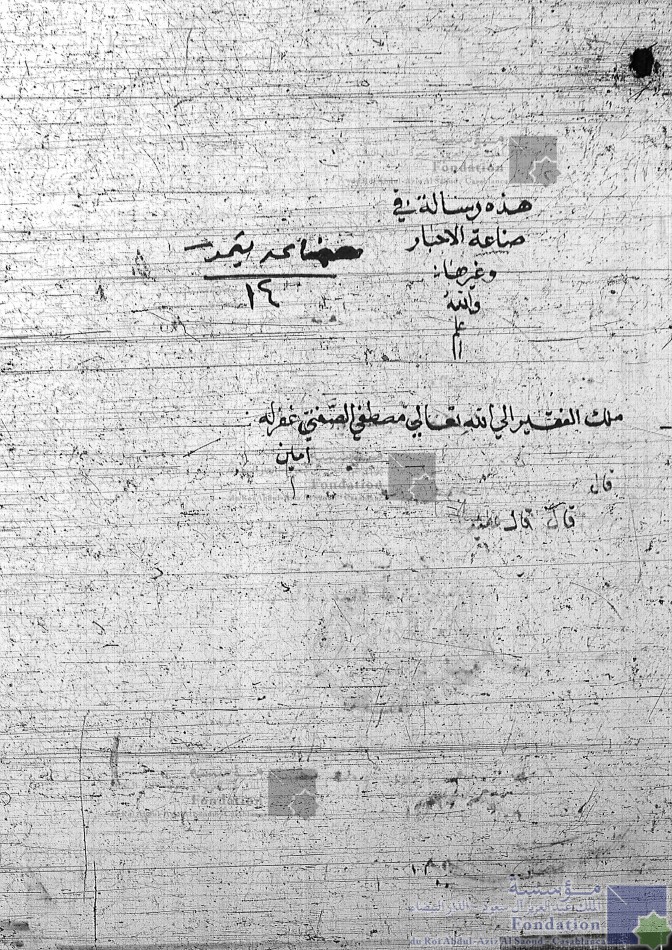 هذه رسالة في
صناعة الاحبار
وغيرها
والله
اعلم
١٤
ملك الفقير الي الله تعالي مصطفي الصفتي غفر له
امين
قال
قال قال
Fondation
Fondation
Fondation
مؤسسة
الملك عبد العزيز آل سعود الدار البيضاء
Fondation
du Roi Abdul-Aziz Al Saoud - Casablanca